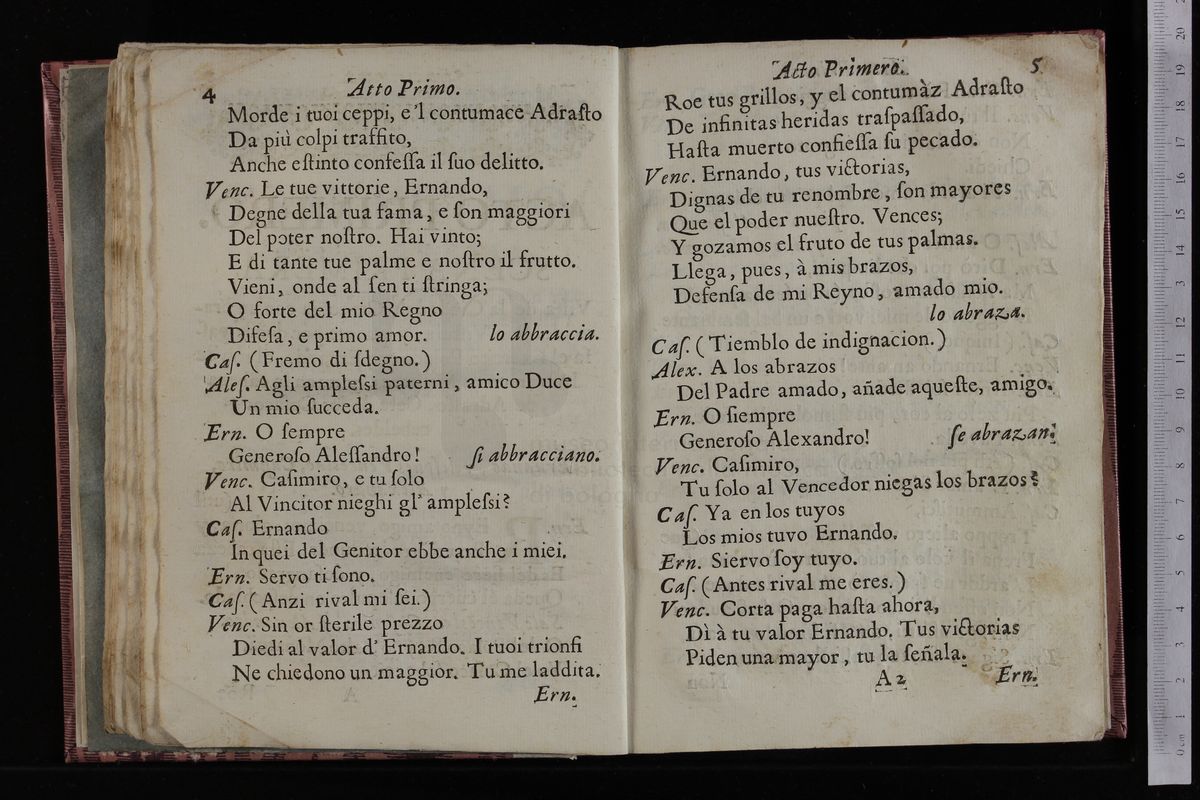 4 Atto Primo.
Morde i tuoi ceppi, e'l contumace Adraſto
Da più colpi traffito,
Anche eſtinto confeſſa il ſuo delitto.
Venc. Le tue vittorie, Ernando,
Degne della tua fama, e ſon maggiori
Del poter noſtro. Hai vinto;
E di tante tue palme e noſtro il frutto.
Vieni, onde al ſen ti ſtringa;
O forte del mio Regno
Difeſa, e primo amor. lo abbraccia.
Caſ. (Fremo di ſdegno.)
Aleſ. Agli ampleſsi paterni, amico Duce
Un mio ſucceda.
Ern. O ſempre
Generoſo Aleſſandro! ſi abbracciano.
Venc. Caſimiro, e tu ſolo
Al Vincitor nieghi gl' ampleſsi?
Caſ. Ernando
In quei del Genitor ebbe anche i miei.
Ern. Servo ti ſono.
Caſ. (Anzi rival mi ſei.)
Venc. Sin or ſterile prezzo
Diedi al valor d' Ernando. I tuoi trionfi
Ne chiedono un maggior. Tu me laddita.
Ern.
Acto Primerò. 5
Roe tus grillos, y el contumàz Adraſto
De infinitas heridas traſpaſſado,
Haſta muerto confieſſa ſu pecado.
Venc. Ernando, tus victorias,
Dignas de tu renombre, ſon mayores
Que el poder nueſtro. Vences;
Y gozamos el fruto de tus palmas.
Llega, pues, à mis brazos,
Defenſa de mi Reyno, amado mio.
lo abraza.
Caſ. (Tiemblo de indignacion.)
Alex. A los abrazos
Del Padre amado, añade aqueſte, amigo.
Ern. O ſiempre
Generoſo Alexandro! ſe abrazan.
Venc. Caſimiro,
Tu ſolo al Vencedor niegas los brazos?
Caſ. Ya en los tuyos
Los mios tuvo Ernando.
Ern. Siervo ſoy tuyo.
Caſ. (Antes rival me eres.)
Venc. Corta paga haſta ahora,
Dì à tu valor Ernando. Tus victorias
Piden una mayor, tu la ſeñala.
A 2 Ern.
0 cm 1 2 3 4 5 6 7 8 9 10 11 12 13 14 15 16 17 18 19 20